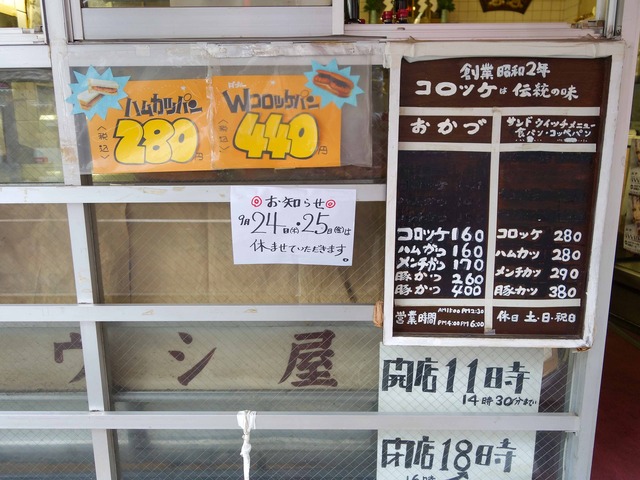 ハムカツパン
280円
(税込)
Wコロッケパン
440円
(税込)
お知らせ
9月24日(木)・25日(金)は
休ませていただきます
創業昭和2年
コロッケは伝統の味
おかづ
コロッケ 160
ハムかつ 160
メンチかつ 170
豚かつ 260
豚かつ 400
サンドウイッチメニュー
食パン・コッペパン
コロッケ 280
ハムカツ 280
メンチカツ 290
豚カツ 380
営業時間 AM11:00 PM2:30
PM4:00 PM6:00
休日 土・日・祝日
ウシ屋
開店11時
14時30分まで
閉店18時